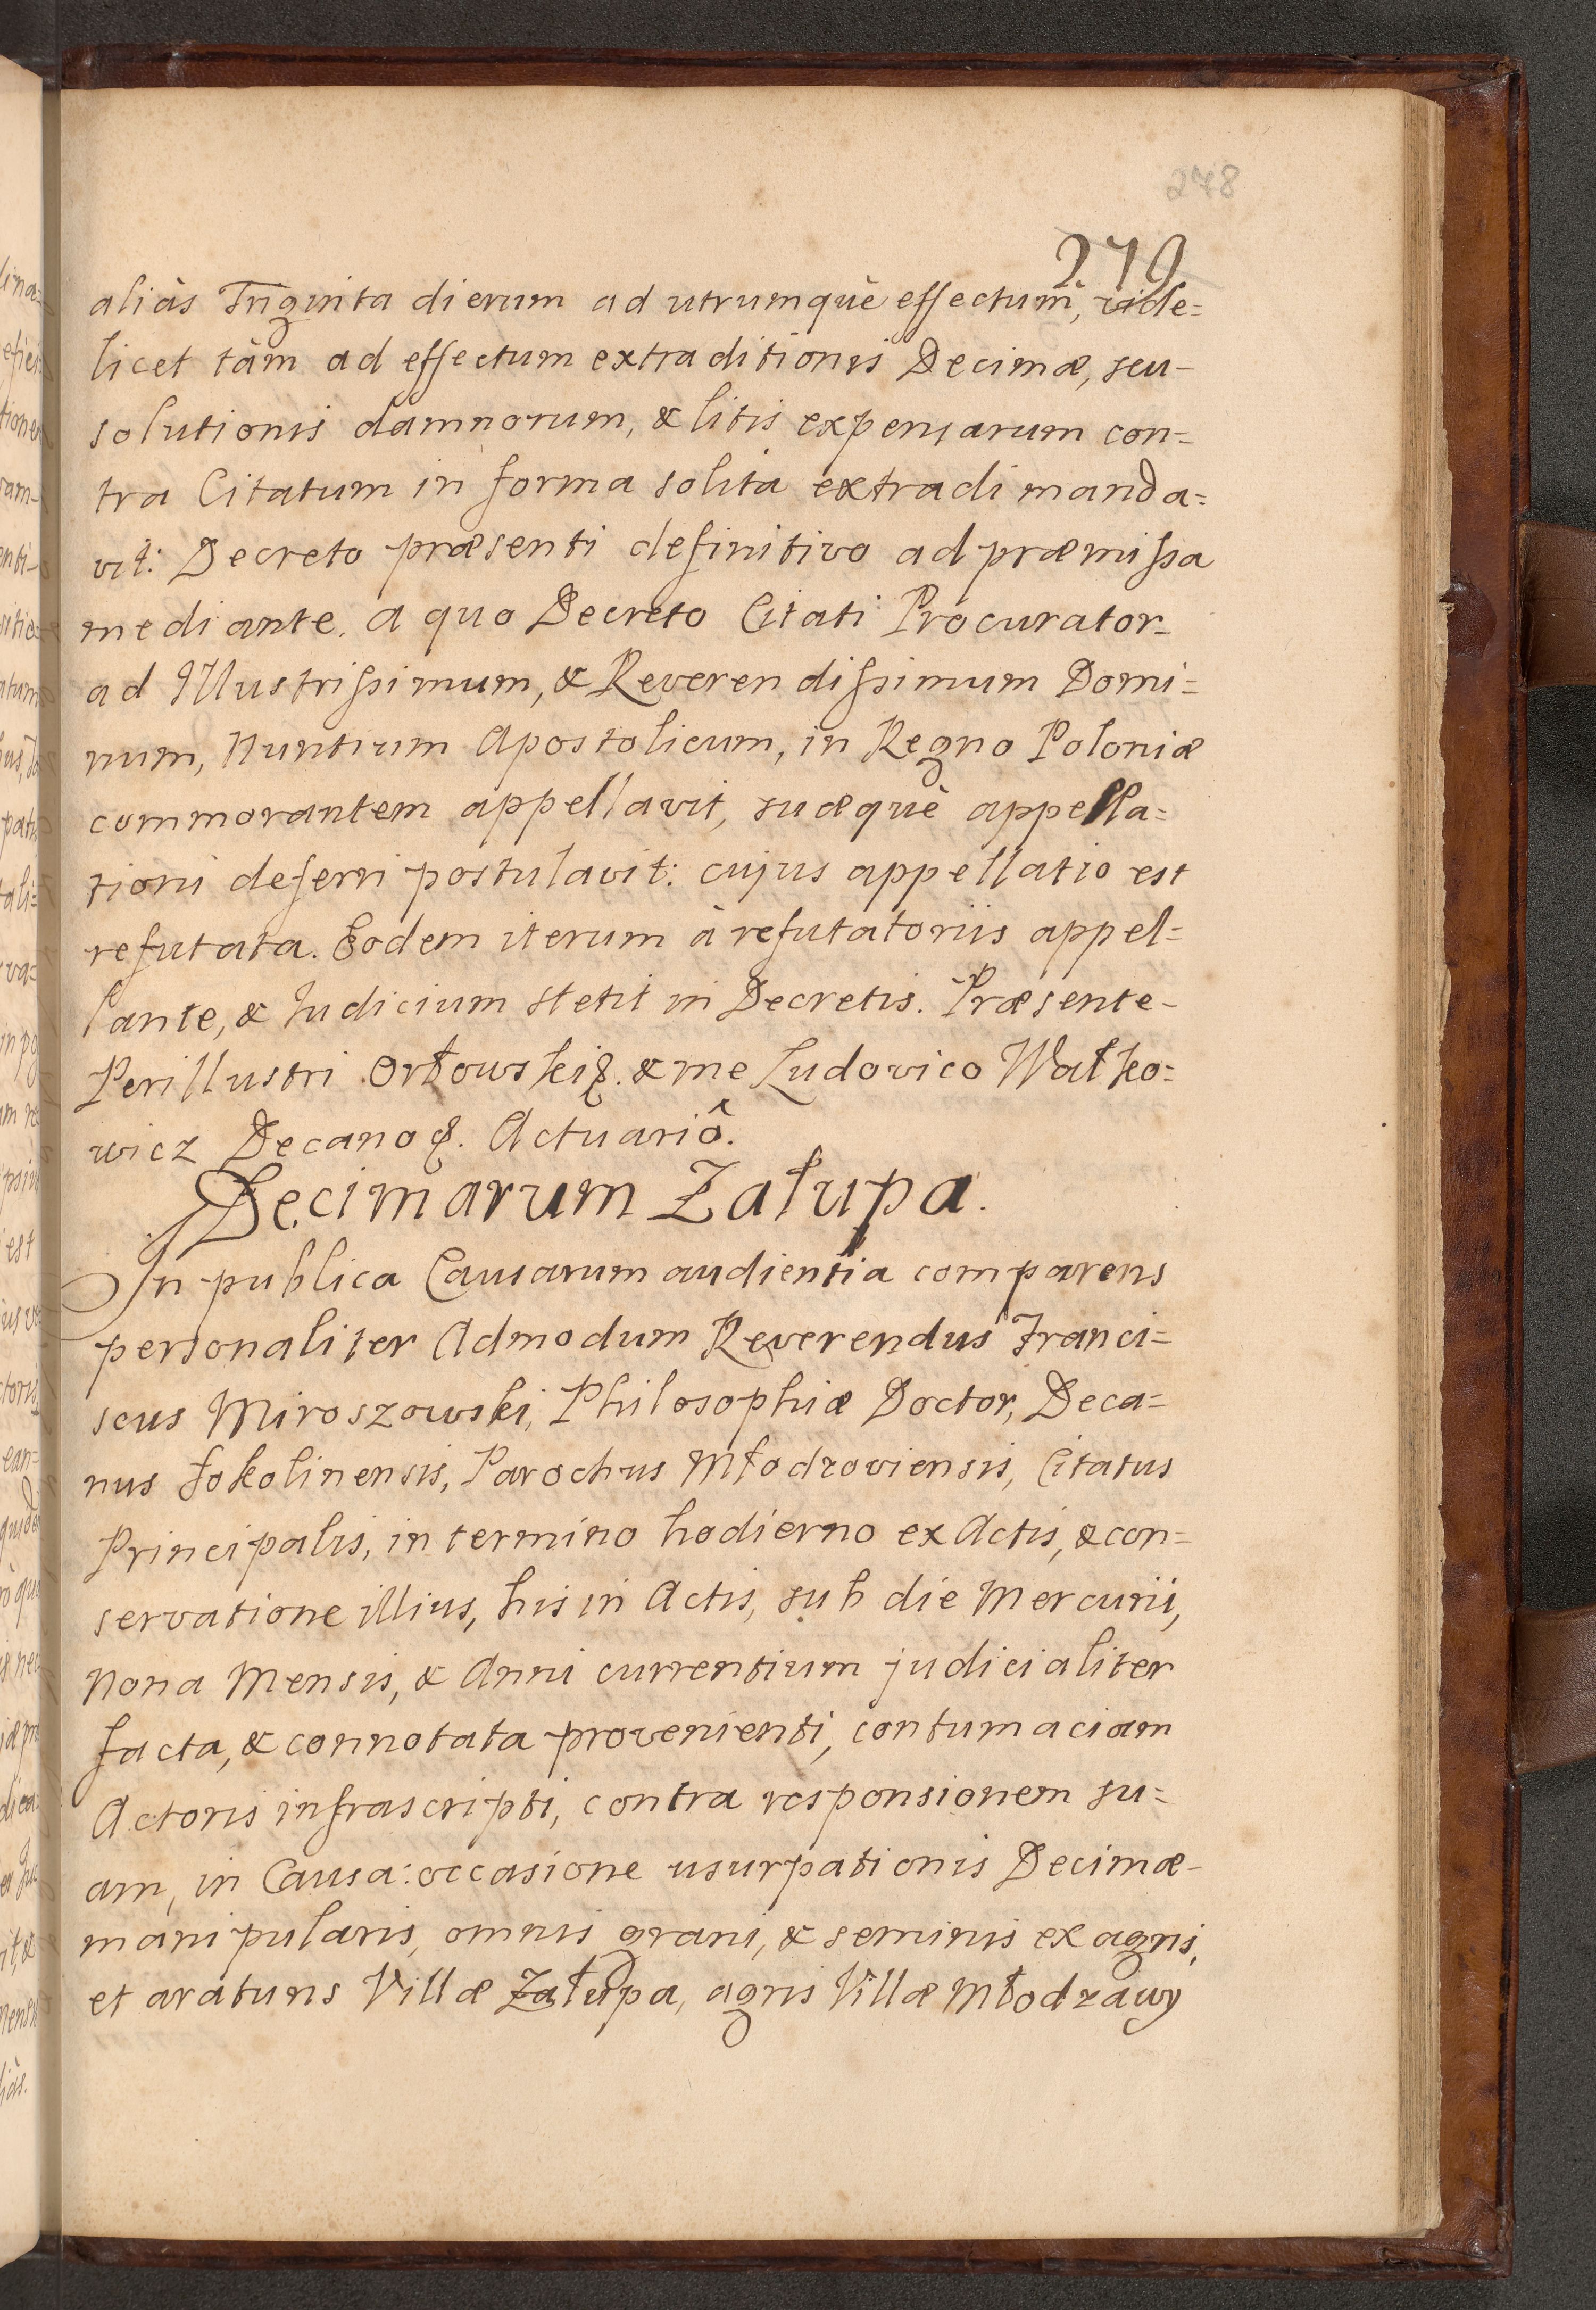 278
279
aliàs Triginta dierum ad utrumquè effectum, vide=
licet tàm ad effectum extraditionis Decimæ, seu-
solutionis damnorum, & litis expensarum con=
tra Citatum in forma solita extradi manda=
vit: Decreto præsenti definitivo ad præmissa
mediante. A quo Decreto Citati Procurator-
ad Illustrissimum, & Reverendissimum Domi=
num, Nuntium Apostolicum, in Regno Poloniæ
commorantem appellavit, suæquè appella=
tioni deferri postulavit: cujus appellatio est
refutata. Eodem iterum à refutatoriis appel=
lante, & Iudicium stetit in Decretis. Præsente-
Perillustri Orłowski & me Ludovico Wałko=
wicz Decano Actuariô.
Decimarum Załupa.
In publica Causarum audientia comparens
personaliter Admodum Reverendus Franci=
scus Miroszowski, Philosophiæ Doctor, Deca=
nus Sokolinensis, Parochus Młodzoviensis, Citatus
Principalis, in termino hodierno ex Actis, & con=
servatione illius, his in Actis, sub die Mercurii,
Nona Mensis, & Anni currentium judicialiter
facta, & connotata provenienti, contumaciam
Actoris infrascripti, contra responsionem su=
am, in Causa: occasione usurpationis Decimæ-
manipularis, omnis grani, & seminis ex agris,
et araturis Villæ Załupa, agris Villæ Młodzawy